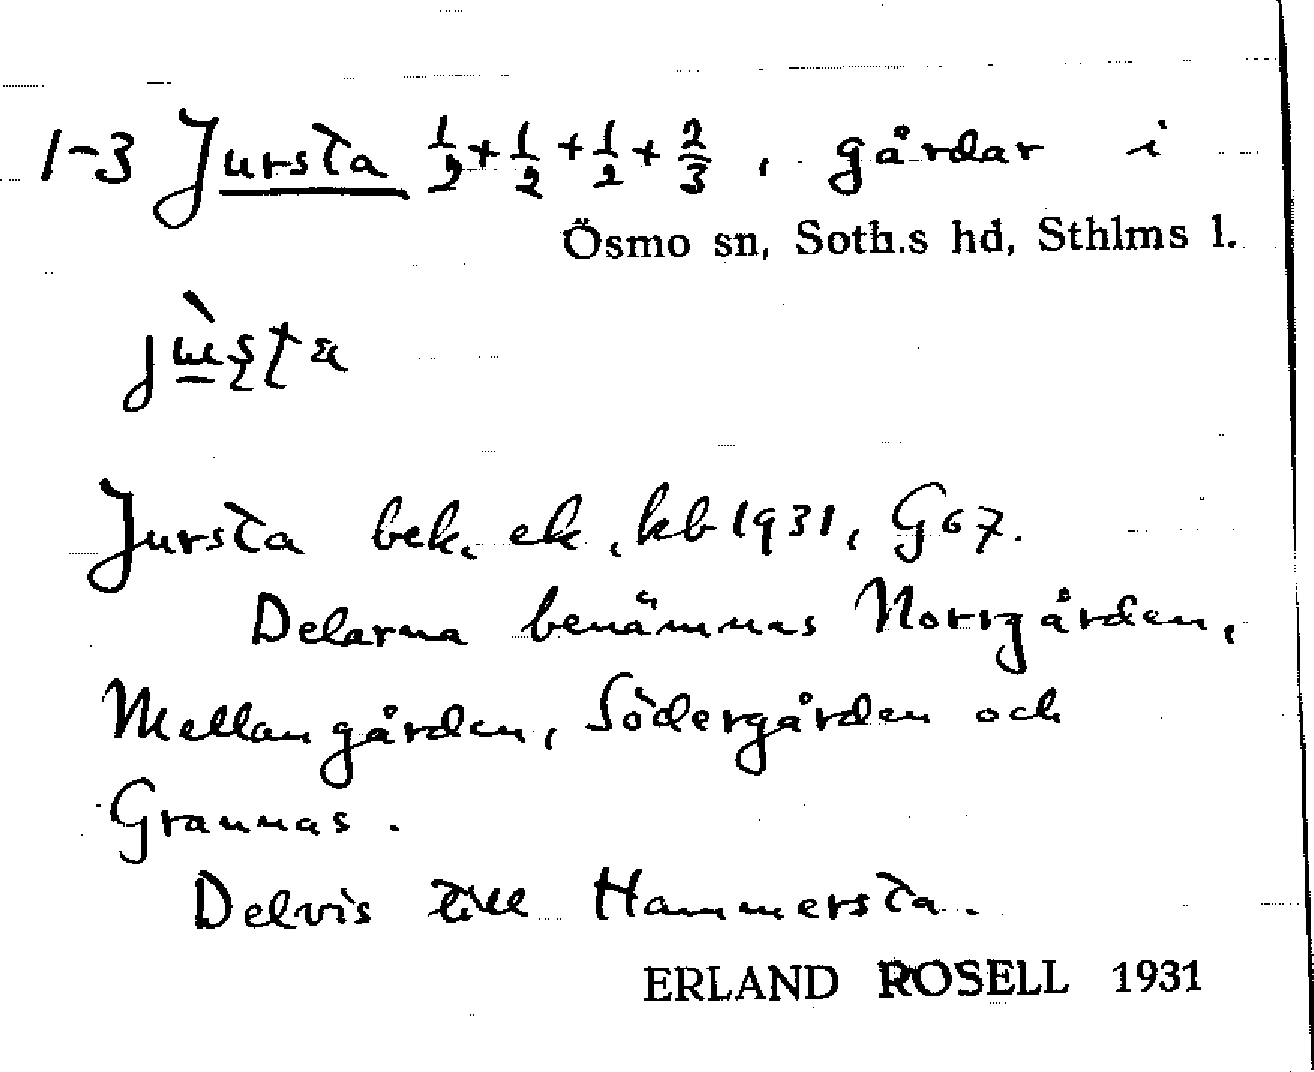 1-3 Jursta ½+½+½+⅔, gårdar i
Ösmo sn, Soth.s hd, Sthlms l.
Jursta bek. ek, kb 1931, G67.
Delarna benämnas Norrgården,
Mellangården, Södergården och
Grannas.
Delvis till Hammersta.
ERLAND ROSELL 1931